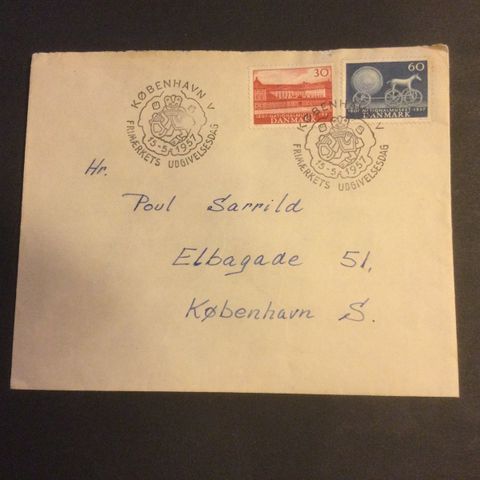 KØBENHAVN V
15-5-1957
FRIMÆRKETS UDGIVELSESDAG
30
DANMARK
60
NATIONALMUSEET 1957
DANMARK
KØBENHAVN V
15-5-1957
FRIMÆRKETS UDGIVELSESDAG
Hr.
Poul Sarrild
Elbagade 51,
København S.